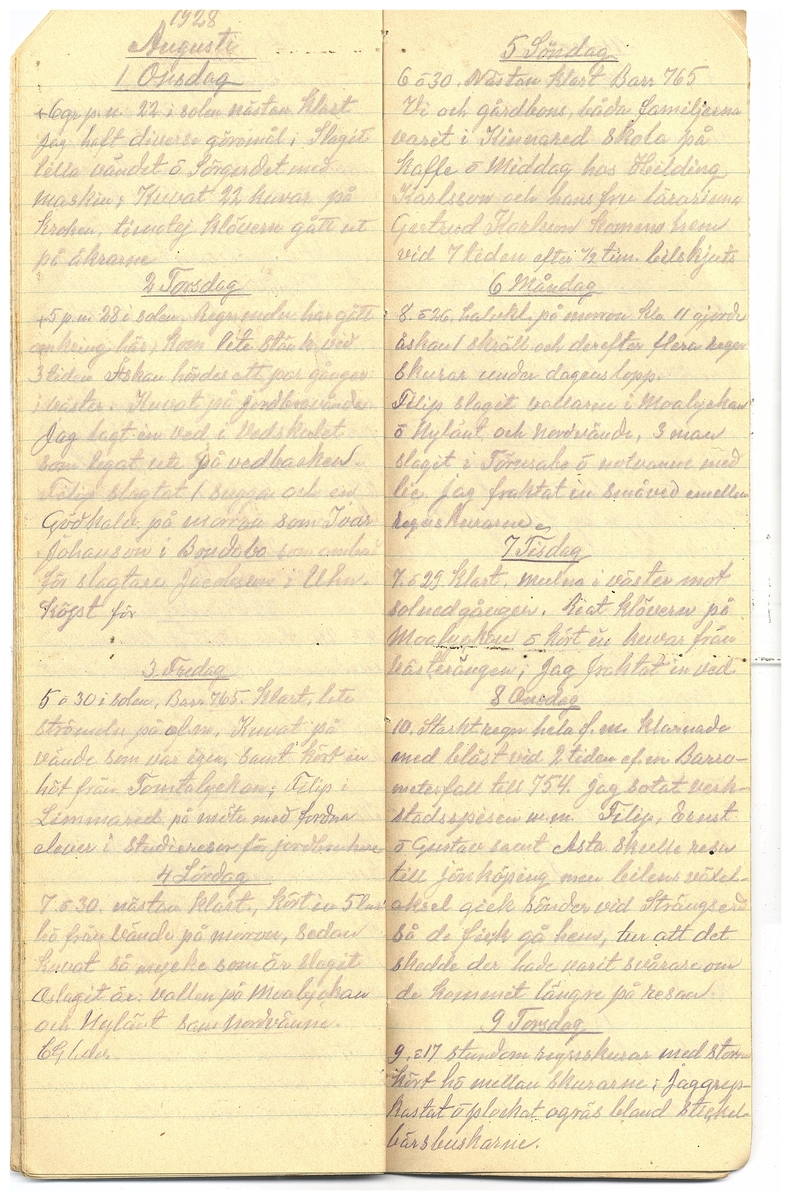 1928
Augusti
1 Onsdag
+6gr p.m. 22 i solen nästan klart
Jag haft diverse göromål; Slagit
lilla vändet o Sörgerdet med
maskin; Kuvat 22 kuvar på
kroken, timotej klövern gått ut
på åkrarne
2 Torsdag
+5 p.m. 28 i solen, Regnandu har gått
omkring här, kom lite stänk vid
3 tiden Åskan hördes ett par gånger
i väster. Kuvat på
Jag lagt in ved i Vedskulet
som legat ute på vedbacken.
Filip slagtat 1 sugga och en
Gödkalv på morron som Ivar
Johanson i Bondabo som ombu
för slagtare Jacobson i Uhn.
Köpt för
3 Fredag
5 o 30 i solen, Barr 765. Klart, lite
strömoln på efm. Kuvat på
vände som var igen, samt kört in
höt från Tomtalyckan; Filip i
Limmared på möte med fordna
elever i studieresor för jordbrukare
4 Lördag
7 o 30. nästan klart, kört in 5 lass
hö från vände på morron, sedan
kuvat så mycke som är slagit
Oslagit är: vallen på Moalyckan
och Nylänt samt Nordvänne.
5 Söndag
6 o 30. Nästan klart Barr 765
Vi och gårdbons, båda familjerna
varit i Kinnared skola på
Kaffe o Middag hos Hilding
Karlsson och hans fru lärarinna
Gertrud Karlson komma hem
vid 7 tiden efter ½ tim. bilskjuts
6 Måndag
8. o 26. halvkl. på morron kla. 11 gjorde
åskan 1 skräll och derefter flera regn
skurar under dagens lopp.
Filip slagit vallarne i Moalyckan
o Nylänt och Nordvände, 3 man
slagit i o notvarne med
lie, jag fraktat in småved emellan
regnskurarne
7 Tisdag
7. o 29 klart. mulna i väster mot
solnedgången. Reat klövern på
Moalyckan o kört in kuvar från
västerängen; Jag fraktat in ved
8 Onsdag
10. Starkt regn hela f.m. klarnade
med blåst vid 2 tiden ef.m Baro-
meterfall till 754. Jag sotat verk-
stadsspisen m.m. Filip, Ernst
o Gustav samt Asta skulle resa
till jönköping men bilens växel-
aksel gick sönder vid Strängsered
så de fick gå hem, tur att det
skedde der hade varit svårare om
de kommit längre på resan.
9 Torsdag
9. o 17 stundom regnskurar med storm
Kört hö mellan skurarne; Jag grep-
kastat o plockat ogräs bland stickel-
bärsbuskarne.